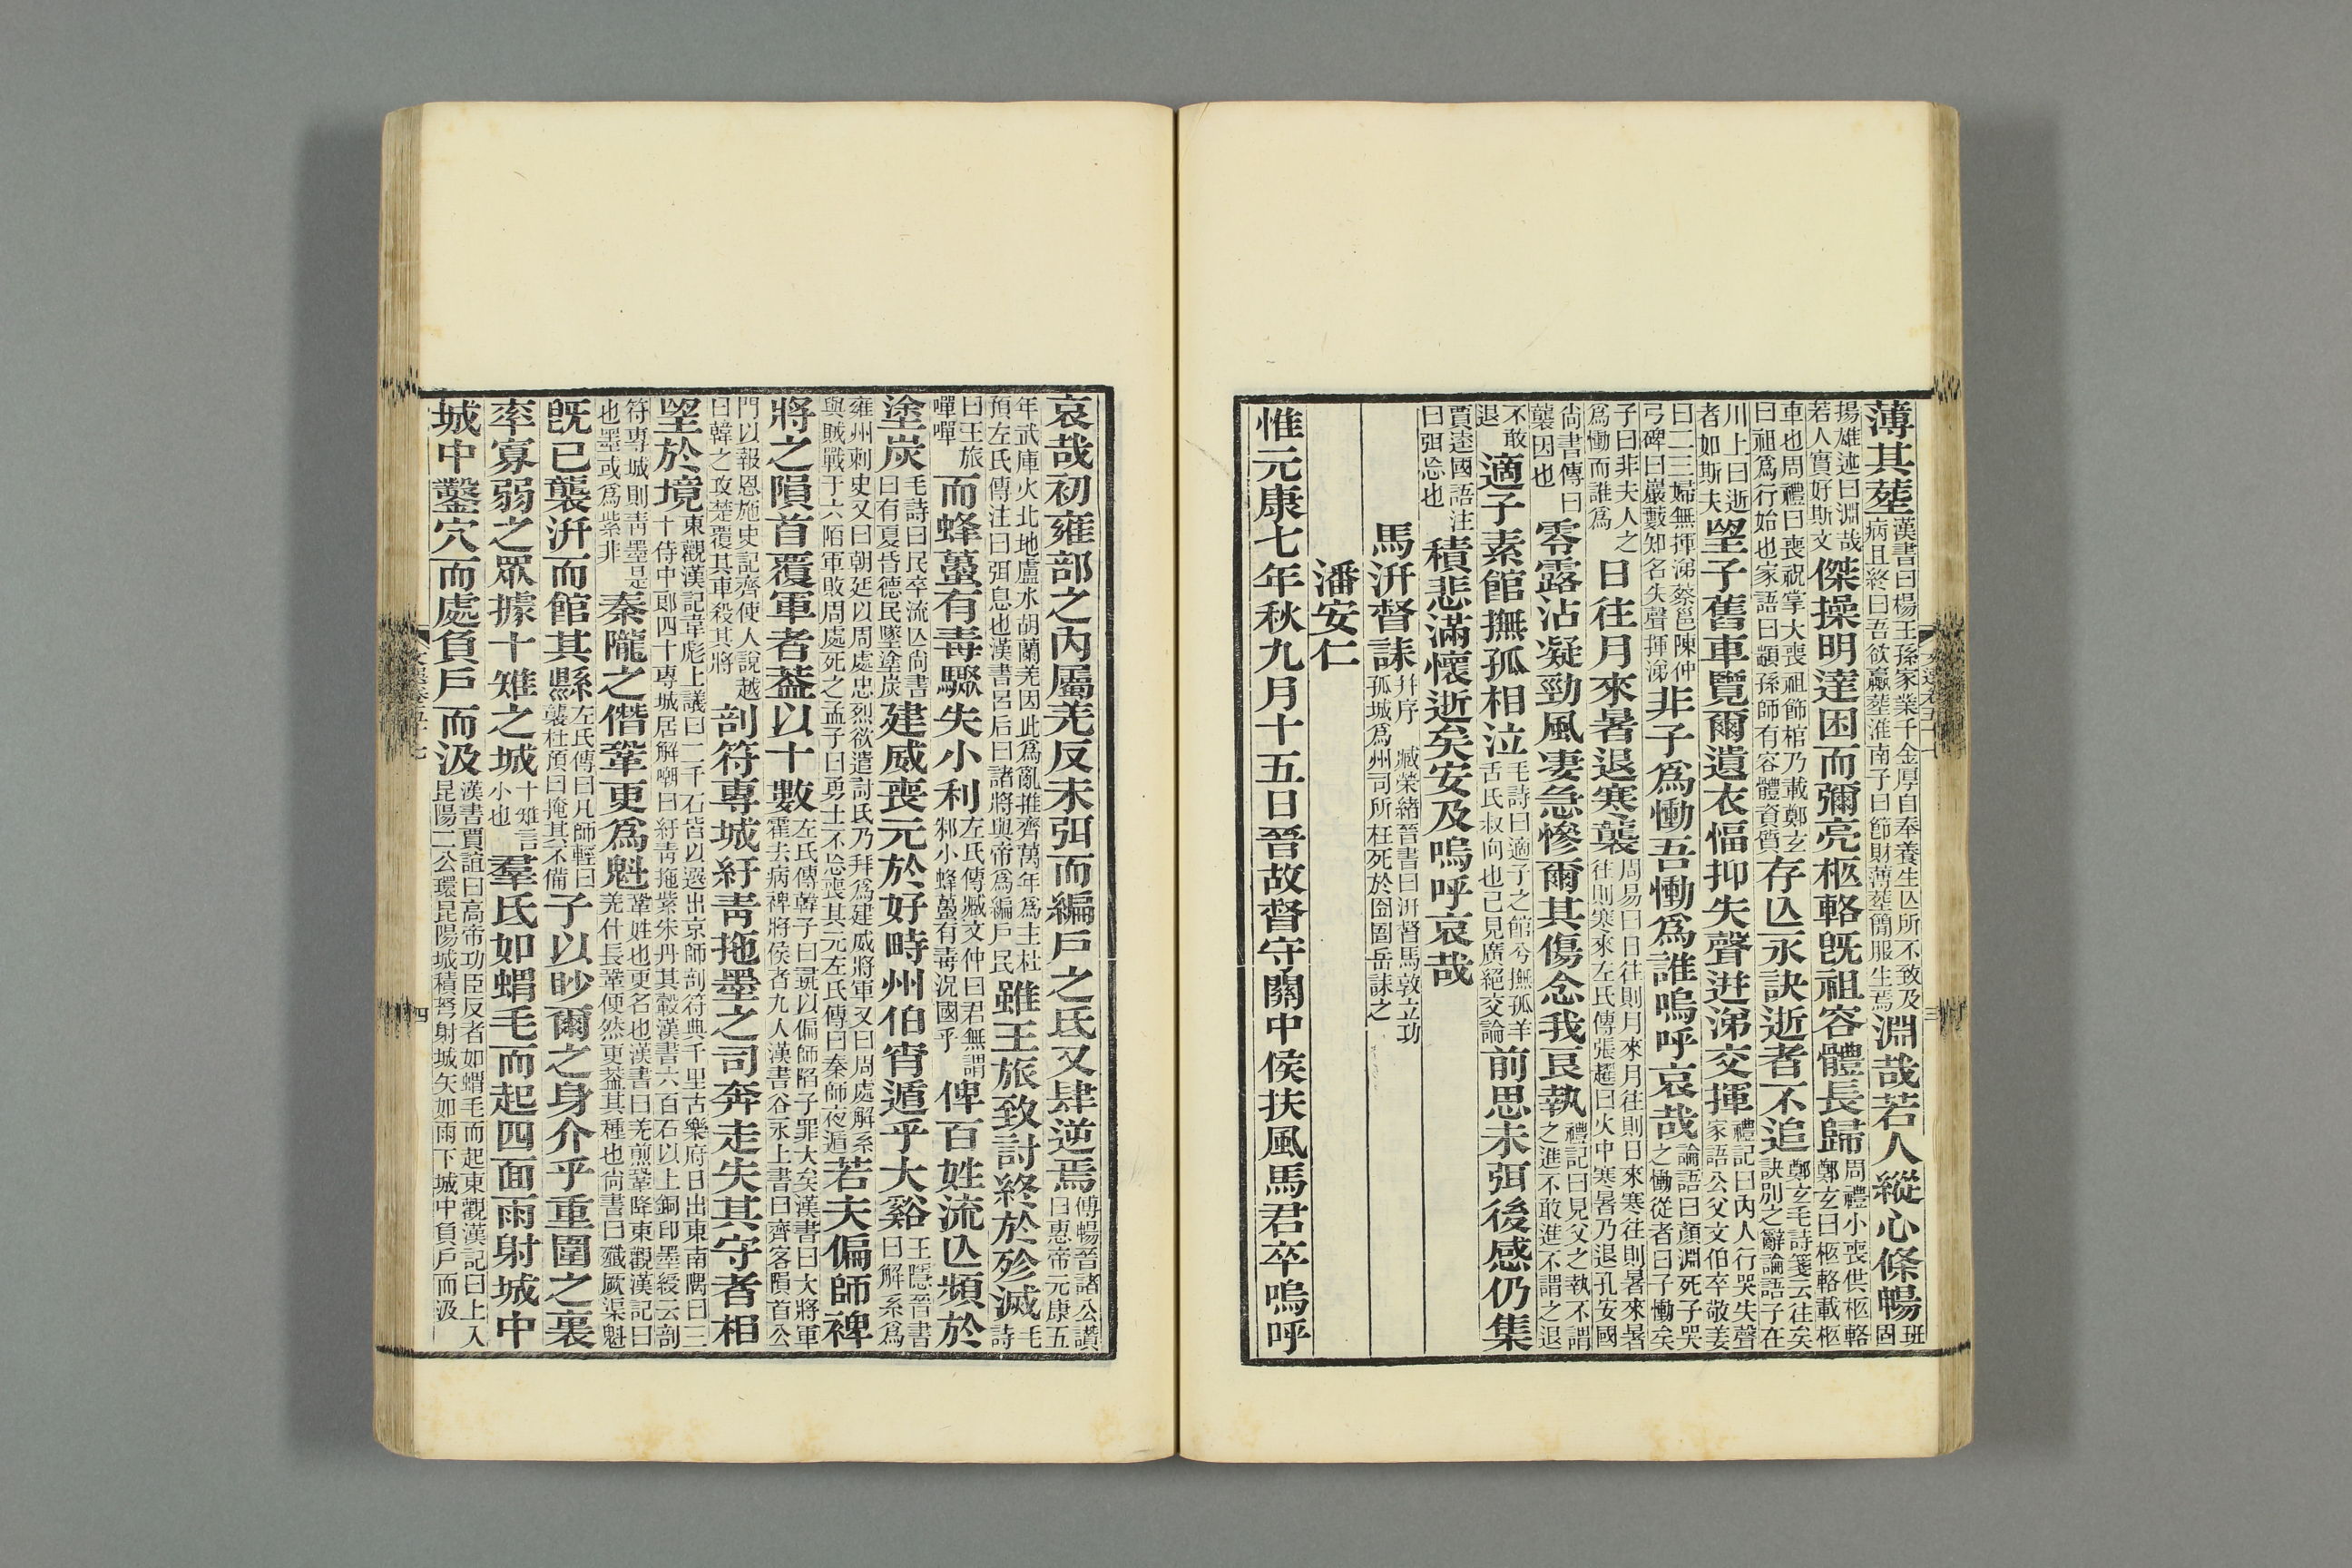 薄其葬漢書曰楊王孫家業千金厚自奉養生亾所不致及病且終曰吾欲臝葬淮南子曰節財薄葬簡服生焉淵哉若人縱心條暢班固
揚雄述曰淵哉若人實好斯文傑操明達困而彌亮柩輅旣祖容體長歸周禮小喪供柩輅鄭玄曰柩輅載柩
車也周禮曰喪祝掌大喪祖飾棺乃載鄭玄曰祖爲行始也家語曰顓孫師有容體資質存亾永訣逝者不追鄭玄毛詩箋云往矣訣別之辭論語子在
川上曰逝者如斯夫望子舊車覽爾遺衣愊抑失聲迸涕交揮禮記曰內人行哭失聲家語公父文伯卒敬姜
曰二三婦無揮涕蔡邕陳仲弓碑曰巖藪知名失聲揮涕非子爲慟吾慟爲誰嗚呼哀哉論語曰顏淵死子哭之慟從者曰子慟矣
子曰非夫人之爲慟而誰爲日往月來暑退寒襲周易曰日往則月來月往則日來寒往則暑來暑往則寒來左氏傳張趯曰火中寒暑乃退孔安國
尙書傳曰襲因也零露沾凝勁風凄急慘爾其傷念我良執禮記曰見父之執不謂之進不敢進不謂之退
不敢退適子素館撫孤相泣毛詩曰適子之館兮撫孤羊舌氏叔向也已見廣絕交論前思未弭後感仍集
賈逵國語注曰弭忘也積悲滿懷逝矣安及嗚呼哀哉
馬汧督誄幷序臧榮緒晉書曰汧督馬敦立功孤城爲州司所枉死於囹圄岳誄之
潘安仁
惟元康七年秋九月十五日晉故督守關中侯扶風馬君卒嗚呼
哀哉初雍部之內屬羌反未弭而編戶之氐又肆逆焉傅暢晉諸公讚曰惠帝元康五
年武庫火北地盧水胡蘭羌因此爲亂推齊萬年爲主杜預左氏傳注曰弭息也漢書呂后曰諸將與帝爲編戶民雖王旅致討終於殄滅毛詩
曰王旅嘽嘽而蜂蠆有毒驟失小利左氏傳臧文仲曰君無謂邾小蜂蠆有毒況國乎俾百姓流亾頻於
塗炭毛詩曰民卒流亾尙書曰有夏昏德民墜塗炭建威喪元於好畤州伯宵遁乎大谿王隱晉書曰解系爲
雍州刺史又曰朝廷以周處忠烈欲遣討氐乃拜爲建威將軍又曰周處解系與賊戰于六陌軍敗周處死之孟子曰勇士不忘喪其元左氏傳曰秦師夜遁若夫偏師裨
將之隕首覆軍者蓋以十數左氏傳韓子曰彘以偏師陷子罪大矣漢書曰大將軍霍去病裨將侯者九人漢書谷永上書曰齊客隕首公
門以報恩施史記齊使人說越曰韓之攻楚覆其車殺其將剖符專城紆靑拖墨之司奔走失其守者相
望於境東觀漢記韋彪上議曰二千石皆以選出京師剖符典千里古樂府日出東南隅曰三十侍中郞四十專城居解嘲曰紆靑拖紫朱丹其轂漢書六百石以上銅印墨綬云剖
符專城則靑墨是也墨或爲紫非秦隴之僭鞏更爲魁鞏姓也更名也漢書曰羌煎鞏降東觀漢記曰羌什長鞏便然更蓋其種也尙書曰殲厥渠魁
旣已襲汧而館其縣左氏傳曰凡師輕曰襲杜預曰掩其不備子以眇爾之身介乎重圍之裏
率寡弱之眾據十雉之城十雉言小也羣氐如蝟毛而起四面雨射城中
城中鑿穴而處負戶而汲漢書賈誼曰高帝功臣反者如蝟毛而起東觀漢記曰上入昆陽二公環昆陽城積弩射城矢如雨下城中負戶而汲